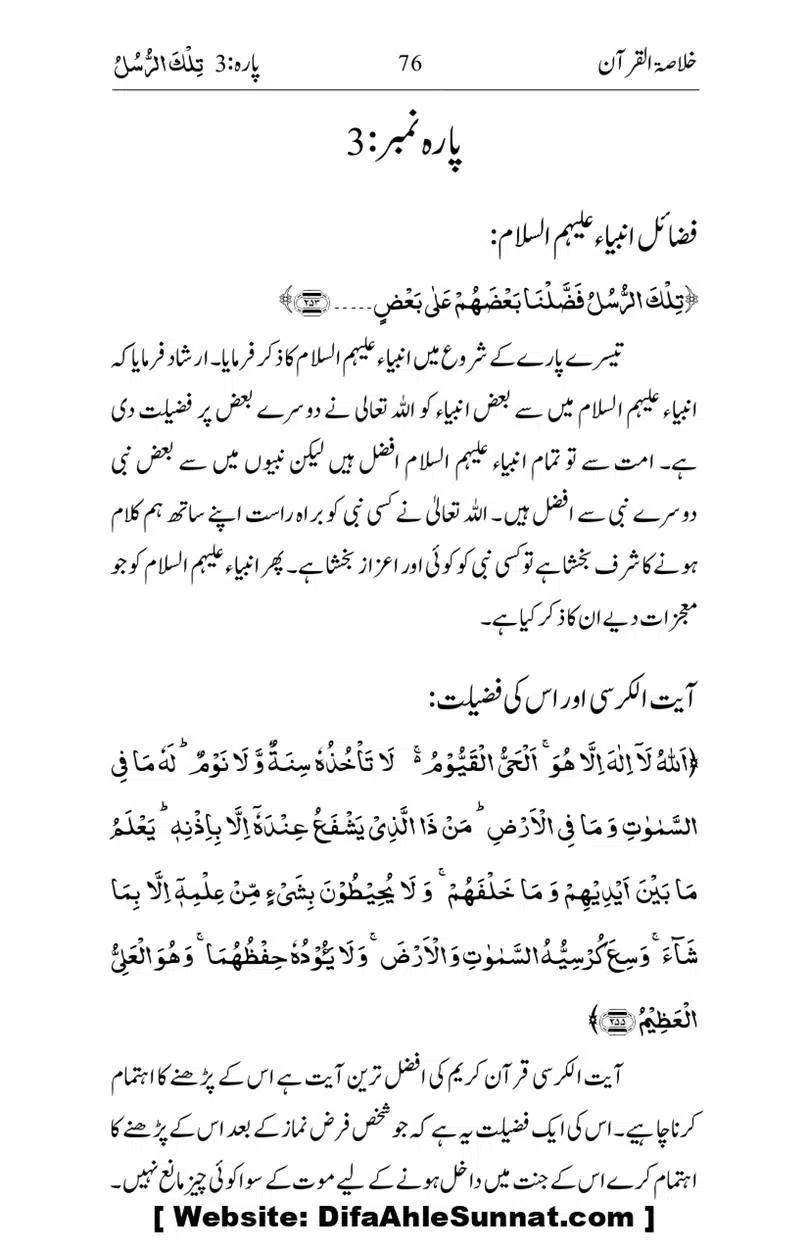 خلاصۃ القرآن 76 پارہ:3 تِلْكَ الرُّسُلُ
پارہ نمبر:3
فضائل انبیاء علیہم السلام:
﴿تِلْكَ الرُّسُلُ فَضَّلْنَا بَعْضَهُمْ عَلٰى بَعْضٍ.....﴿۲۵۳﴾﴾
تیسرے پارے کے شروع میں انبیاء علیہم السلام کا ذکر فرمایا۔ ارشاد فرمایا کہ
انبیاء علیہم السلام میں سے بعض انبیاء کو اللہ تعالی نے دوسرے بعض پر فضیلت دی
ہے۔ امت سے تو تمام انبیاء علیہم السلام افضل ہیں لیکن نبیوں میں سے بعض نبی
دوسرے نبی سے افضل ہیں۔ اللہ تعالیٰ نے کسی نبی کو براہ راست اپنے ساتھ ہم کلام
ہونے کا شرف بخشا ہے تو کسی نبی کو کوئی اور اعزاز بخشا ہے۔ پھر انبیاء علیہم السلام کو جو
معجزات دیے ان کا ذکر کیا ہے۔
آیت الکرسی اور اس کی فضیلت:
﴿اَللّٰهُ لَاۤ اِلٰهَ اِلَّا هُوَ ۚ اَلْحَیُّ الْقَیُّوْمُ ۚ۬ لَا تَاْخُذُهٗ سِنَةٌ وَّ لَا نَوْمٌ ؕ لَهٗ مَا فِی
السَّمٰوٰتِ وَ مَا فِی الْاَرْضِ ؕ مَنْ ذَا الَّذِیْ یَشْفَعُ عِنْدَهٗۤ اِلَّا بِاِذْنِهٖ ؕ یَعْلَمُ
مَا بَیْنَ اَیْدِیْهِمْ وَ مَا خَلْفَهُمْ ۚ وَ لَا یُحِیْطُوْنَ بِشَیْءٍ مِّنْ عِلْمِهٖۤ اِلَّا بِمَا
شَآءَ ۚ وَسِعَ كُرْسِیُّهُ السَّمٰوٰتِ وَ الْاَرْضَ ۚ وَ لَا یَـُٔوْدُهٗ حِفْظُهُمَا ۚ وَ هُوَ الْعَلِیُّ
الْعَظِیْمُ ﴿۲۵۵﴾﴾
آیت الکرسی قرآن کریم کی افضل ترین آیت ہے اس کے پڑھنے کا اہتمام
کرنا چاہیے۔ اس کی ایک فضیلت یہ ہے کہ جو شخص فرض نماز کے بعد اس کے پڑھنے کا
اہتمام کرے اس کے جنت میں داخل ہونے کے لیے موت کے سوا کوئی چیز مانع نہیں۔
[ Website: DifaAhleSunnat.com ]